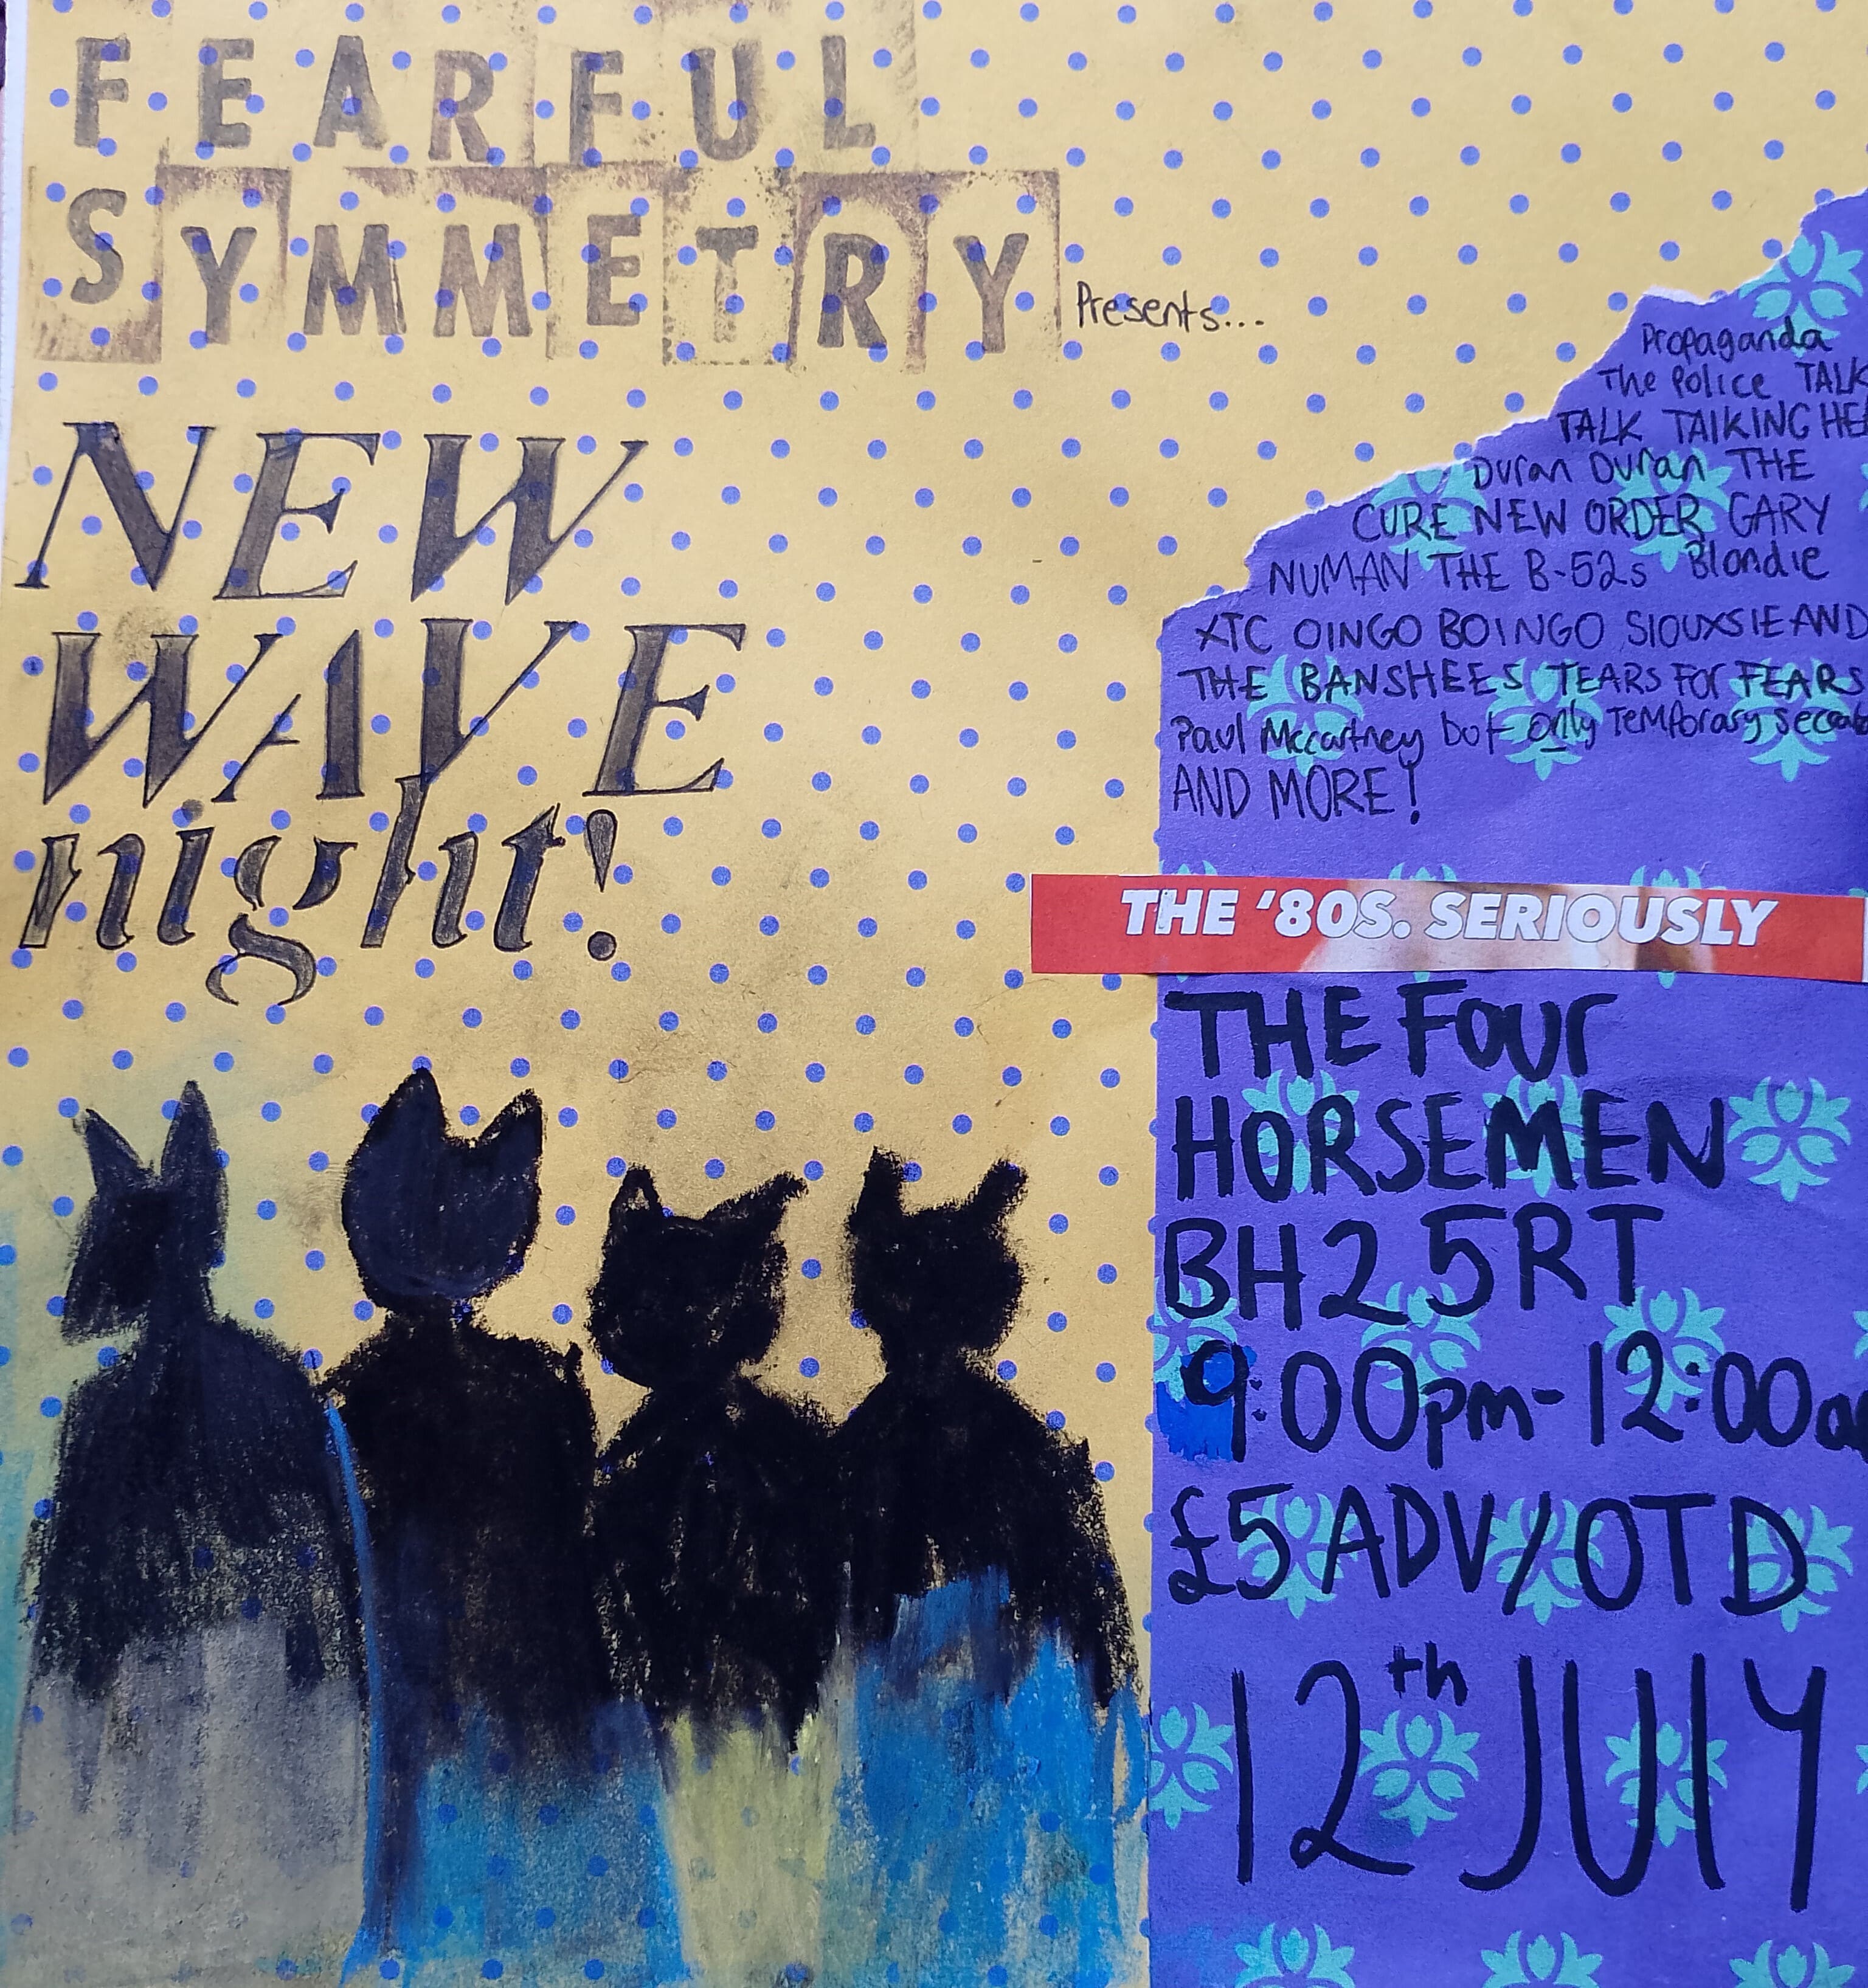 FEARFUL
SYMMETRY Presents...
NEW
WAVE
night!
Propaganda
The Police TALK
TALK TALKING HEA
Duran Duran THE
CURE NEW ORDER GARY
NUMAN THE B-52s Blondie
XTC OINGO BOINGO SIOUXSIE AND
THE BANSHEES TEARS FOr FEARS
Paul Mccartney but only TeMPOrary
AND MORE!
THE '80S. SERIOUSLY
THE FOUr
HORSEMEN
BH2 5RT
9:00pm-12:00a
£5 ADV/OTD
12th JUlY